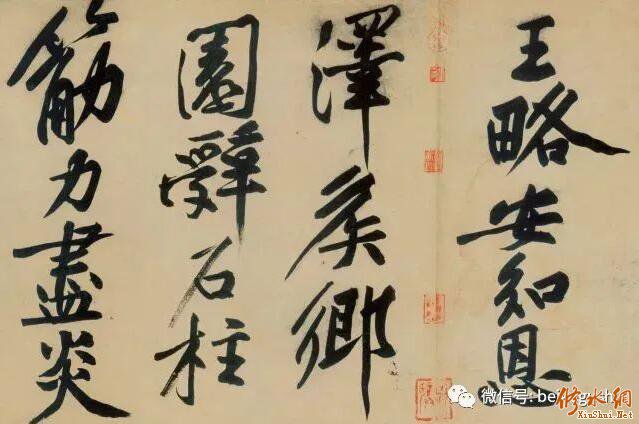 王略安知恩
澤矦鄉
園辭石柱
筋力盡炎
微信号:
修水網
XiuShui.Net